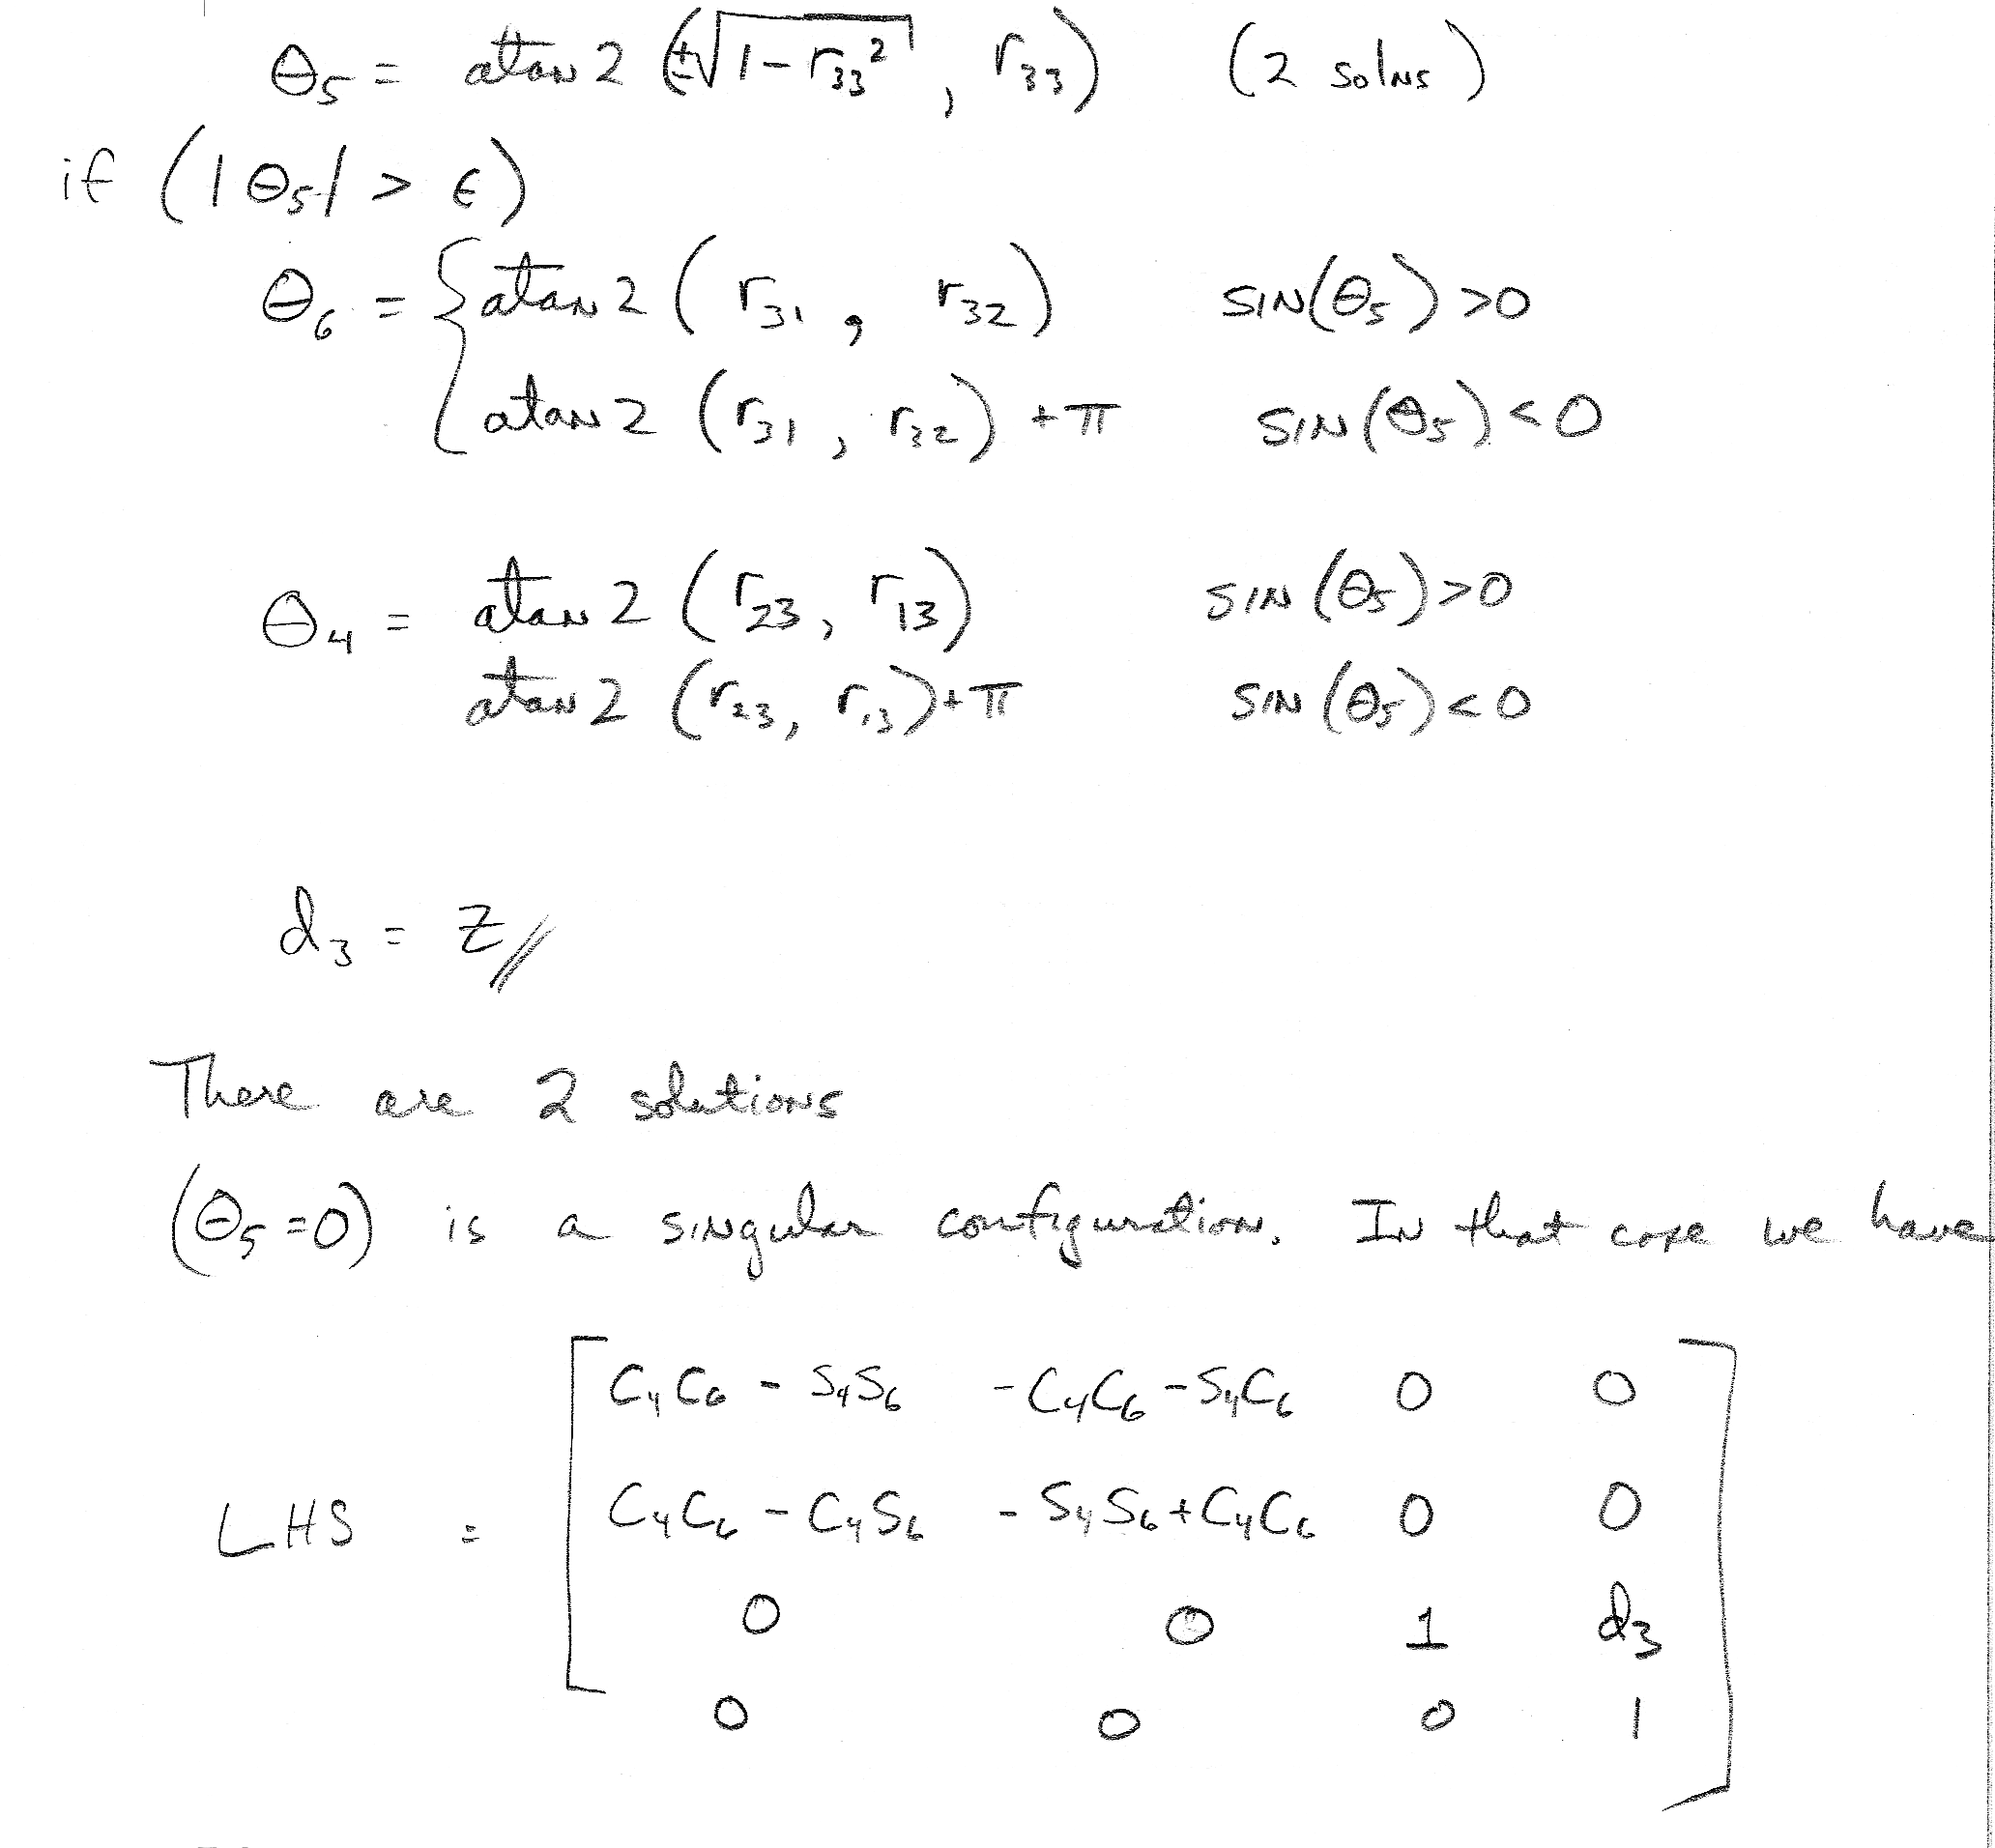 θ₅ = atan2 (±√(1 - r₃₃²), r₃₃) (2 solns)
if (|θ₅| > ϵ)
θ₆ = { atan2 (r₃₁, r₃₂) sin(θ₅) >0
atan2 (r₃₁, r₃₂) + π sin(θ₅) <0
θ₄ = atan2 (r₂₃, r₁₃) sin (θ₅) >0
atan2 (r₂₃, r₁₃) + π sin (θ₅) <0
d₃ = z //
There are 2 solutions
(θ₅ = 0) is a singular configuration. In that case we have
C₄C₆ - S₄S₆ -C₄C₆ - S₄C₆ 0 0
LHS = C₄C₆ - C₄S₆ -S₄S₆ + C₄C₆ 0 0
0 0 1 d₃
0 0 0 1